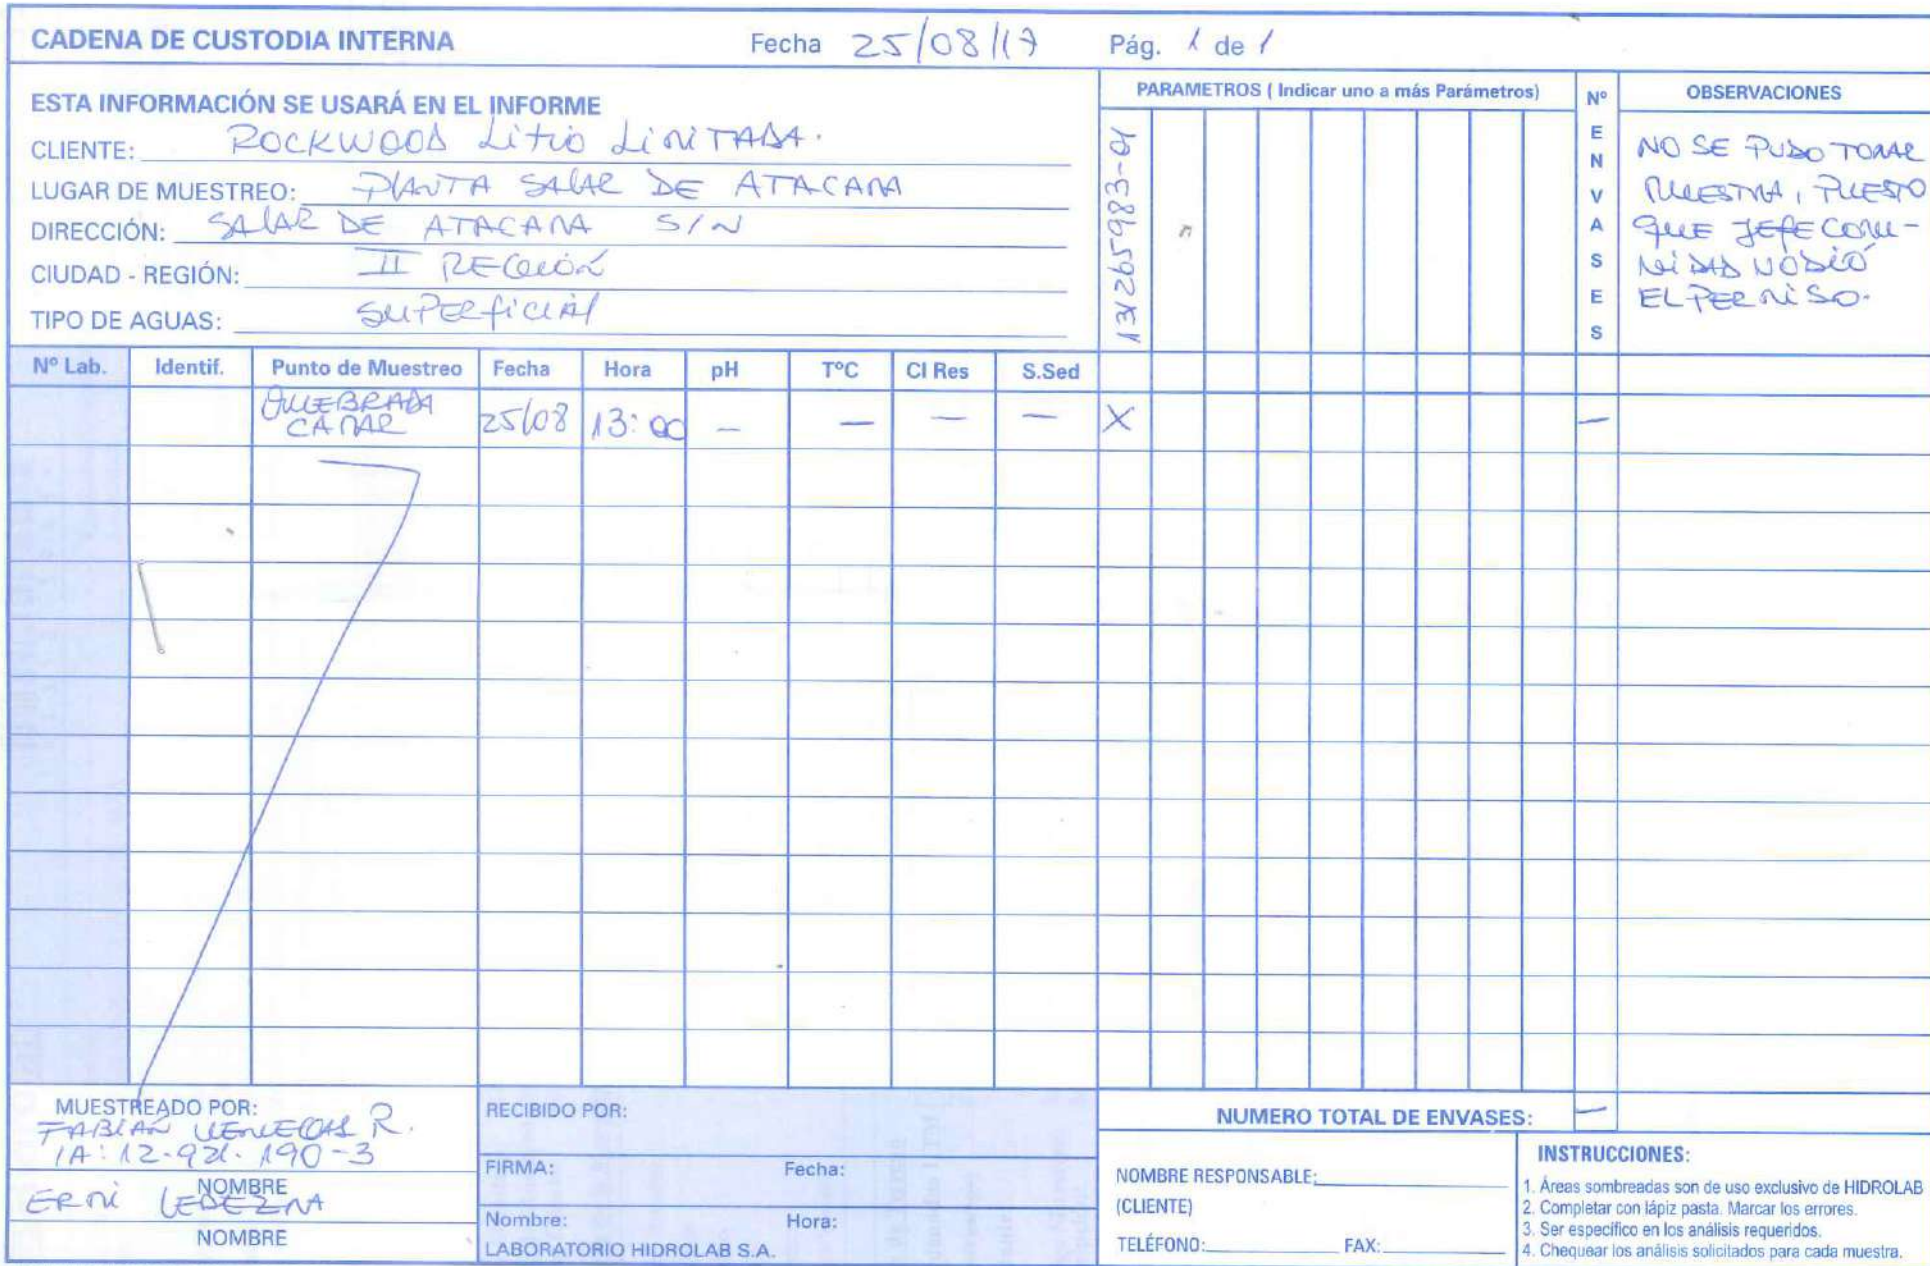 CADENA DE CUSTODIA INTERNA Fecha 25/08/17 Pág. 1 de 1
ESTA INFORMACIÓN SE USARÁ EN EL INFORME
CLIENTE: ROCKWOOD Litio LiMiTADA.
LUGAR DE MUESTREO: PLANTA SALAR DE ATACAMA
DIRECCIÓN: SALAR DE ATACAMA S/N
CIUDAD - REGIÓN: II REGIÓN
TIPO DE AGUAS: SUPERficiAl
PARAMETROS ( Indicar uno a más Parámetros)
Nº ENVASES
OBSERVACIONES
NO SE PUDO TOMAR
MUESTRA, PUESTO
QUE JEFE COMU-
NiDAD NO DIÓ
EL PERMiSO.
Nº Lab. Identif. Punto de Muestreo Fecha Hora pH TºC Cl Res S.Sed
QUEBRADA
CAMAR 25/08 13:00 — — — — X —
MUESTREADO POR:
FABIAN VENEGAS R.
IA: 12.921.190-3
NOMBRE
ERMi LEDEZMA
NOMBRE
RECIBIDO POR:
FIRMA: Fecha:
Nombre: Hora:
LABORATORIO HIDROLAB S.A.
NUMERO TOTAL DE ENVASES: —
NOMBRE RESPONSABLE:
(CLIENTE)
TELÉFONO: FAX:
INSTRUCCIONES:
1. Áreas sombreadas son de uso exclusivo de HIDROLAB
2. Completar con lápiz pasta. Marcar los errores.
3. Ser específico en los análisis requeridos.
4. Chequear los análisis solicitados para cada muestra.